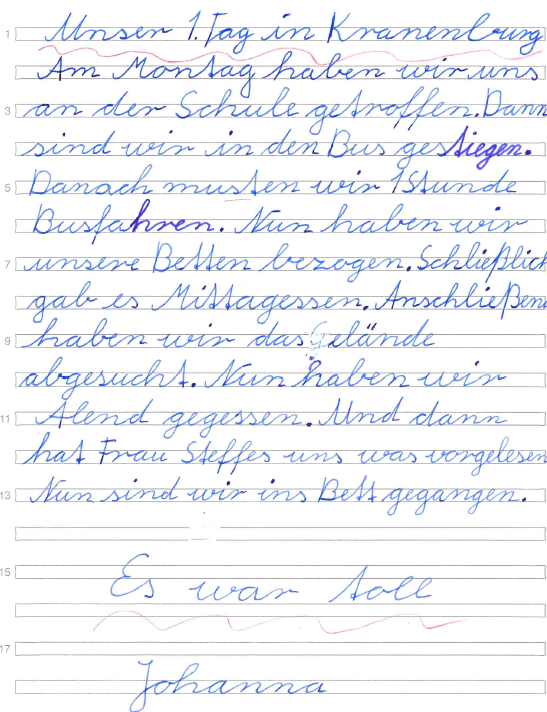 1 Unser 1. Tag in Kranenburg
Am Montag haben wir uns
3 an der Schule getroffen. Dann
sind wir in den Bus gestiegen.
5 Danach musten wir 1 Stunde
Busfahren. Nun haben wir
7 unsere Betten bezogen. Schließlich
gab es Mittagessen. Anschließend
9 haben wir das Gelände
abgesucht. Nun haben wir
11 Abend gegessen. Und dann
hat Frau Steffes uns was vorgelesen
13 Nun sind wir ins Bett gegangen.
15 Es war toll
17
Johanna